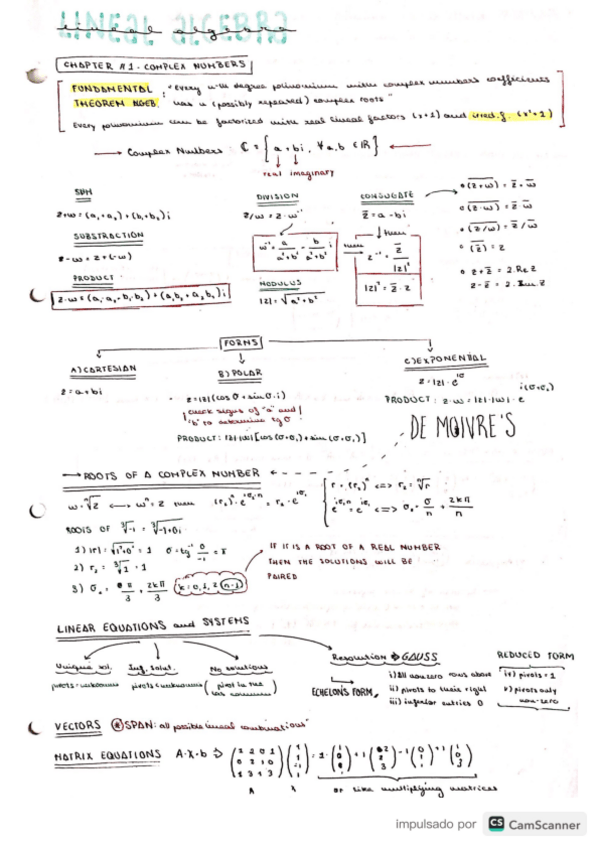 LINEAL ALGEBRA
lineal algebra
CHAPTER #1 - COMPLEX NUMBERS
FUNDAMENTAL : "Every n-th degree polinomium with complex numbers coefficients
THEOREM ALGEB. has n (possibly repeated) complex roots"
Every polinomium can be factorized with real lineal factors (x+1) and irred. f. (x²+1)
Complex Numbers ℂ = { a + bi, ∀ a,b ∈ ℝ }
real imaginary
SUM
z+w = (a₁+a₂) + (b₁+b₂)i
SUBSTRACTION
z-w = z+(-w)
PRODUCT
z·w = (a₁·a₂ - b₁·b₂) + (a₁b₂ + a₂b₁)i
DIVISION
z/w = z·w⁻¹
w⁻¹ = a/(a²+b²) - b/(a²+b²) i
MODULUS
|z| = √(a²+b²)
CONJUGATE
z̅ = a - bi
then
then z⁻¹ = z̅/|z|²
|z|² = z̅·z
(z+w)‾ = z̅ + w̅
(z·w)‾ = z̅·w̅
(z/w)‾ = z̅/w̅
(z̅)‾ = z
z + z̅ = 2·Re z
z - z̅ = 2·Im z
FORMS
A) CARTESIAN
z = a+bi
B) POLAR
z = |z|(cos σ + sin σ·i)
! check signs of "a" and !
"b" to determine tg σ
PRODUCT: |z|·|w|[cos(σ+σ₂)+sin(σ+σ₂)]
C) EXPONENTIAL
z = |z|·e^iσ
PRODUCT: z·w = |z|·|w|·e^i(σ+σ₂)
DE MOIVRE'S
ROOTS OF A COMPLEX NUMBER
w = ⁿ√z ⟷ wⁿ = z then (r₀)ⁿ·e^iσ₀·n = r·e^iσ
r = (r₀)ⁿ <=> r₀ = ⁿ√r
e^iσ₀n = e^iσ <=> σ₀ = σ/n + 2kπ/n
ROOTS OF ³√-1 = ³√-1+0i
1) |r| = √(1²+0²) = 1 σ = tg⁻¹ 0/-1 = π
2) r₀ = ³√1 = 1
3) σ₀ = π/3 + 2kπ/3 k = 0, 1, 2 (n-1)
IF IT IS A ROOT OF A REAL NUMBER
THEN THE SOLUTIONS WILL BE
PAIRED
LINEAR EQUATIONS and SYSTEMS
Unique sol.
pivots = unknowns
Inf. solut.
pivots < unknowns
No solutions
(pivot in the
last column)
Resolution → GAUSS
ECHELON'S FORM
i) All nonzero rows above
ii) pivots to their right
iii) inferior entries 0
REDUCED FORM
iv) pivots = 1
v) pivots only
non-zero
VECTORS * SPAN: "all possible lineal combinations"
MATRIX EQUATIONS A·X=b
A
x
or like multiplying matrices
impulsado por CS CamScanner